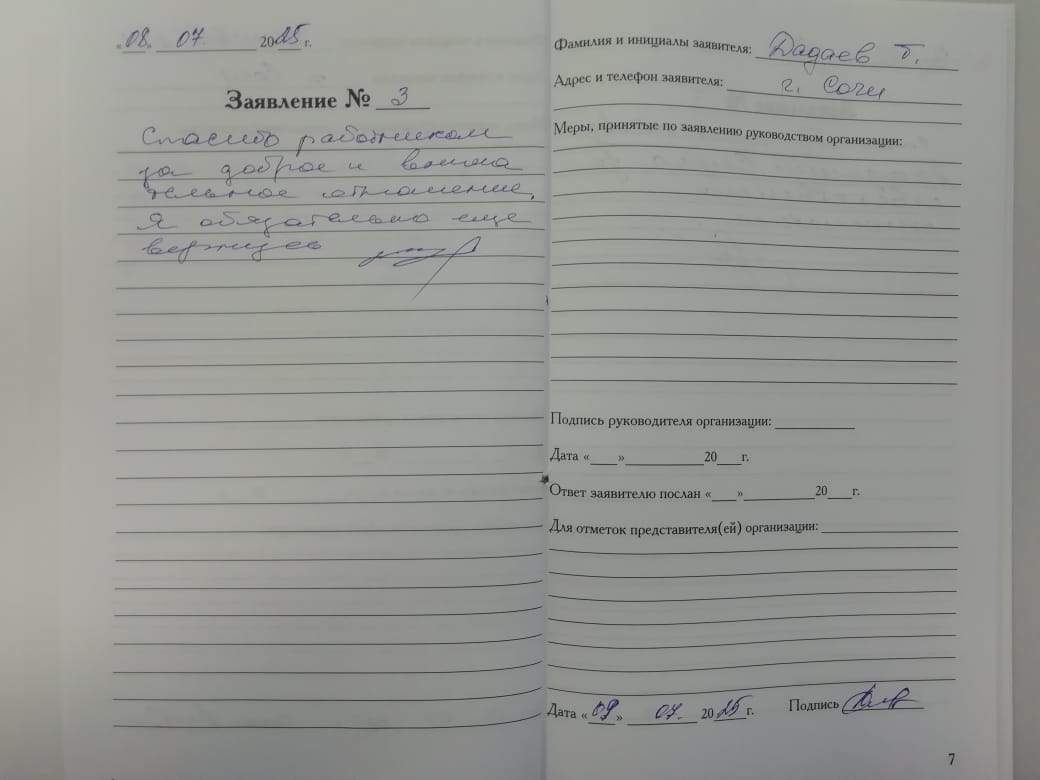 «08» 07. 2025 г.
Заявление № 3
Спасибо работникам
за доброе и внима
тельное отношение,
Я обязательно еще
вернусь
Фамилия и инициалы заявителя: Дадаев Т.
Адрес и телефон заявителя: г. Сочи
Меры, принятые по заявлению руководством организации:
Подпись руководителя организации:
Дата «___»___________20___г.
Ответ заявителю послан «___»__________20___г.
Для отметок представителя(ей) организации:
Дата «09» 07. 2025 г. Подпись
7